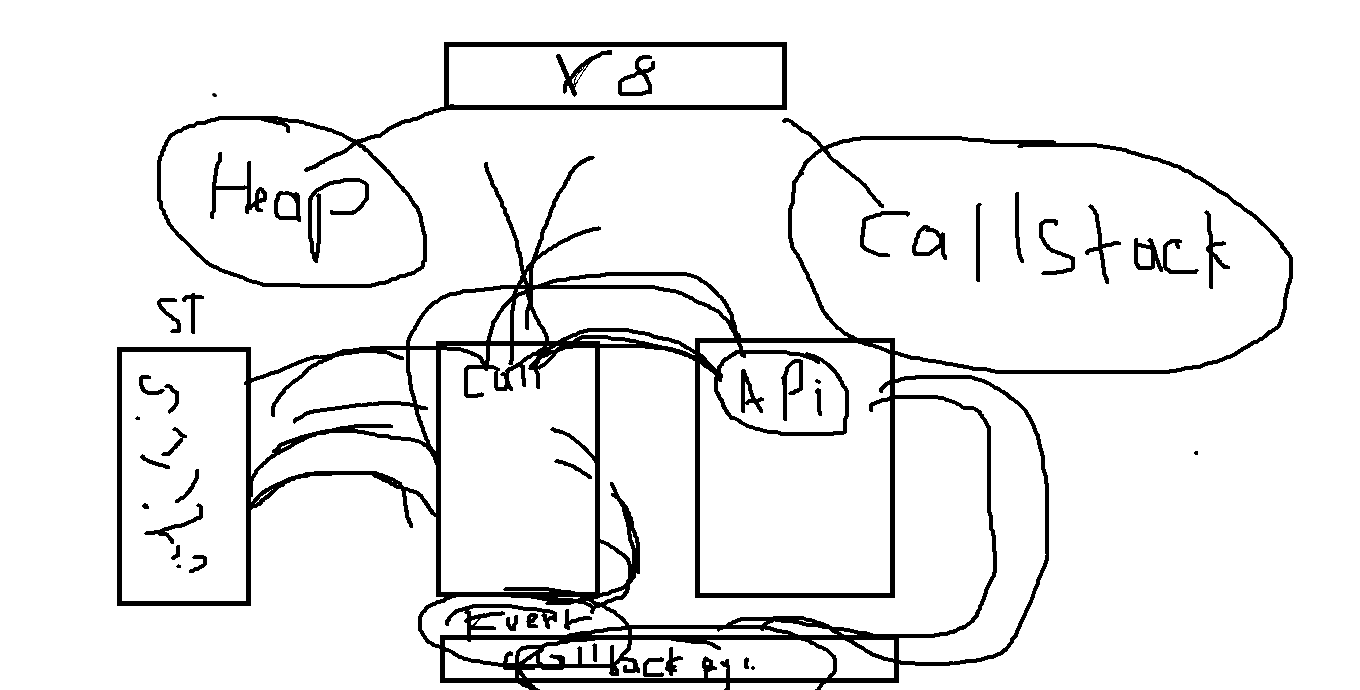 V8
Heap
CallStack
ST
Call
APi
Event
Callback